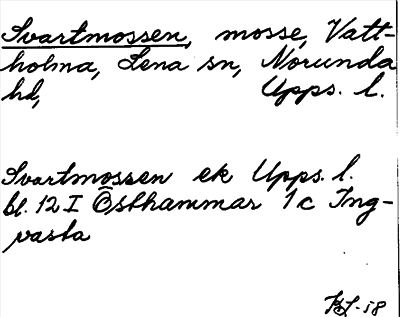 Svartmossen, mosse, Vatt-
holma, Lena sn, Norunda
hd, Upps. l.
Svartmossen ek Upps. l.
bl. 12 I Östhammar 1 c Ing-
vasta